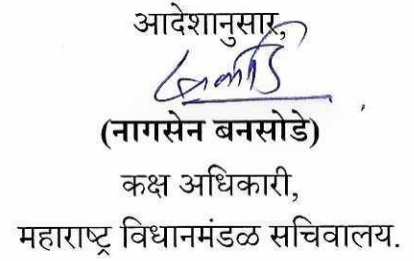 आदेशानुसार,
(नागसेन बनसोडे)
कक्ष अधिकारी,
महाराष्ट्र विधानमंडळ सचिवालय.